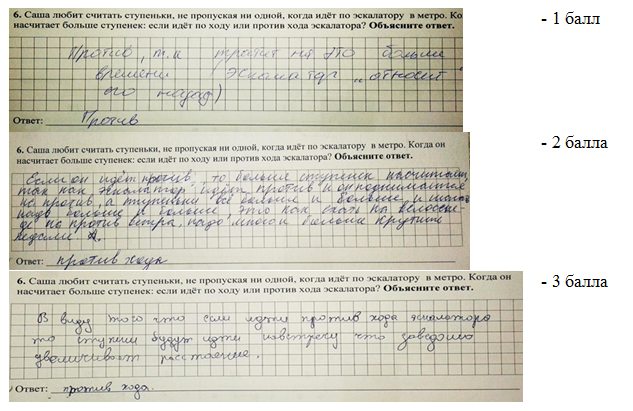 6. Саша любит считать ступеньки, не пропуская ни одной, когда идёт по эскалатору в метро. Ко
насчитает больше ступенек: если идёт по ходу или против хода эскалатора? Объясните ответ.
- 1 балл
Против, т.к тратит на это больше
времени (эскалатор „относит"
его назад)
Ответ: Против
6. Саша любит считать ступеньки, не пропуская ни одной, когда идёт по эскалатору в метро. Когда он
насчитает больше ступенек: если идёт по ходу или против хода эскалатора? Объясните ответ.
- 2 балла
Если он идёт против, то больше ступенек насчитает,
так как эскалатор идёт против и он поднимается
не против, а ступеньки всё больше и больше, и
надо больше и больше, это как ехать на велоси-
де по против ветра, надо много больше крутить
педали
Ответ: против хода
6. Саша любит считать ступеньки, не пропуская ни одной, когда идёт по эскалатору в метро. Когда он
насчитает больше ступенек: если идёт по ходу или против хода эскалатора? Объясните ответ.
- 3 балла
В виду того что если идти против хода эскалатора
то ступени будут идти навстречу что заведомо
увеличивает расстояние.
Ответ: против хода.